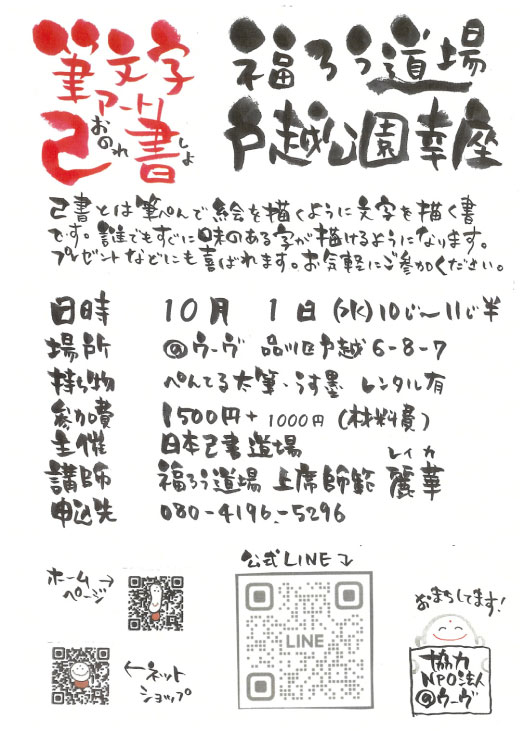 筆文字 福ろう道場
アート!
己書 戸越公園幸座
おのれ しょ
己書とは筆ぺんで絵を描くように文字を描く書
です。誰でもすぐに味のある字が描けるようになります。
プレゼントなどにも喜ばれます。お気軽にご参加ください。
日時 10月 1日(水)10じ〜11じ半
場所 @ウーヴ 品川区戸越6-8-7
持ち物 ぺんてる太筆・うす墨 レンタル有
参加費 1500円+1000円(材料費)
主催 日本己書道場
レイカ
講師 福ろう道場 上席師範 麗華
申込先 080-4196-5296
公式LINE
ホーム
ページ
LINE
ネット
ショップ
おまちしてます!
協力
NPO法人
@ウーヴ